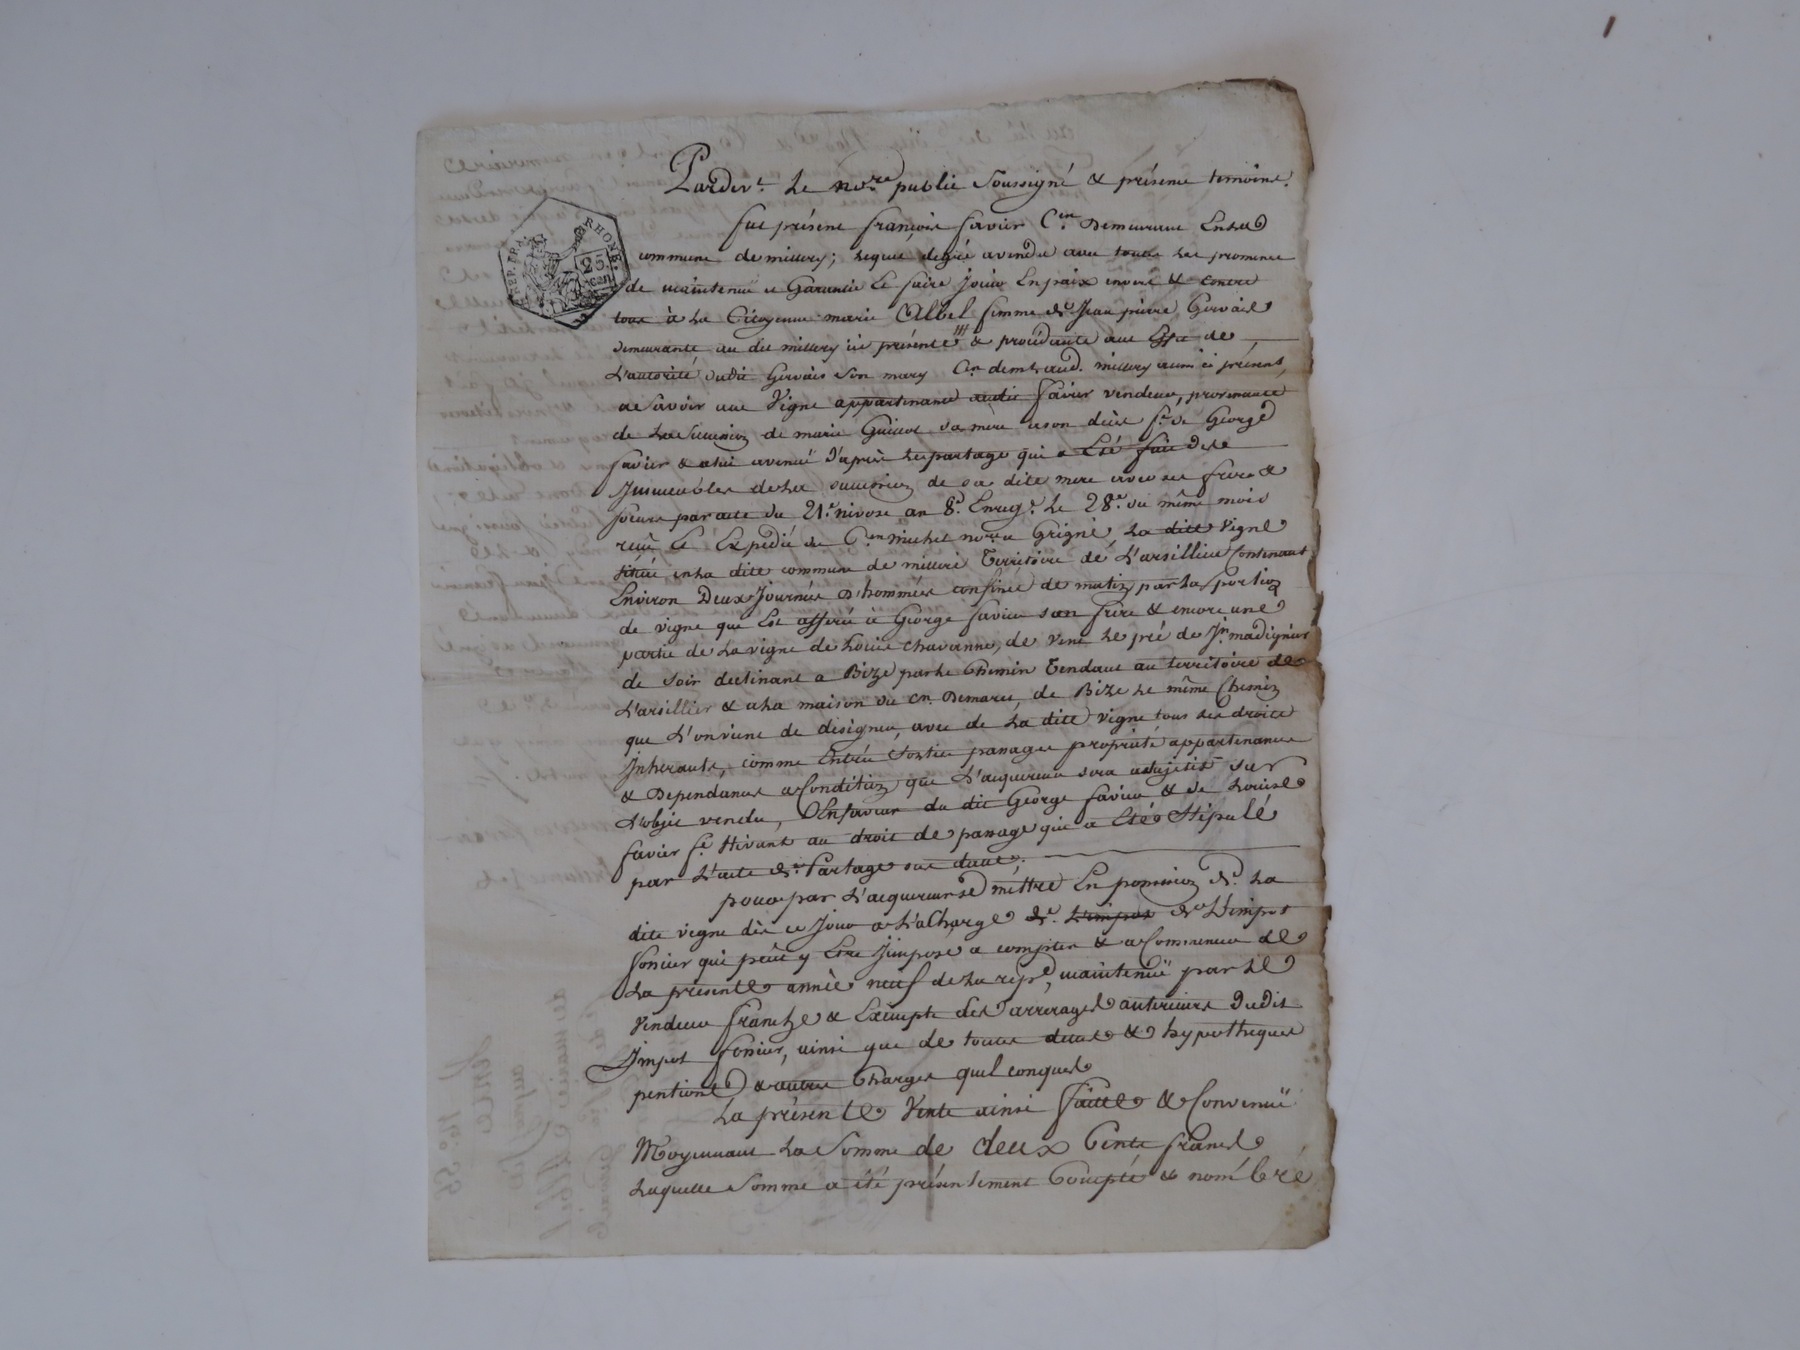 REP. FRA. RHONE.
25 cen
Pardevt. Le nore. public Soussigné & présence temoins.
fut présent françois favier Cen. Demeurant En La d
commune de millery; lequel de gré a vendu avec toutes les promence
de maintenue et Garantie Le faire Jouir En paix envers & contre
tous à La Citoyenne marie Albel femme de Jean pierre Gervais
demeurante au dit millery ici présente & procédante avec Effet de
L'autorité dudit Gervais Son mary Cn. demt. aud. millery aussi ici présent,
a Savoir une Vigne appartenance audit favier vendeur, provenance
de La Succession de marie Guicot sa mere a son décès fe. de George
favier & a lui avenué d'après Le partage qui a Eté fait des
Jmmeubles de La succession de sa dite mere avec ses freres &
soeurs par acte du 21e. nivose an 8e. Enregt. Le 28e. du même mois
reçu Et Expedié du Cen. michel nore. a Grigné, La dite Vigne
Située en La dite commune de milleri Territoire de L'arsillier Contenant
Environ Deux Journées d'hommées confinée de matin par La portion
de vigne que Est afferée à George favier son frere & encore une
partie de La vigne de Louis chavanne, de vent Le pré de Jn. madignier
de Soir declinant a Bize par Le Chemin Tendant au territoire de
L'arsillier & a La maison du Cn. Demare, de Bize Le même Chemin
que L'on vient de designer, avec de La dite vigne tous ses droits
Jnherants, comme Entrée Sortie passages propriété appartenances
& Dependances a Condition que L'acquereur sera assujetit sur
L'objet vendu, En faveur du dit George favier & de Louise
favier fe. Hivant au droit de passage qui a Eté Stipulé
par L'acte de Partage sus daté.
pour par L'acquereur se mettre En possession de La
dite vigne dès ce Jour a La Charge de L'impot de L'impot
foncier qui peut y Etre Jmposé a compter & a Commencer de
La présente année neuf de La repe., maintenuë par Le
Vendeur franche & Exempte des arrerages anterieurs dudit
Jmpot foncier, ainsi que de toutes dettes & hypotheques
pentions & autres Charges quelconques
La présente Vente ainsi faitte & Convenuë
Moyennant La Somme de deux Cents francs
Laquelle Somme a été présentement Comptée & nombré